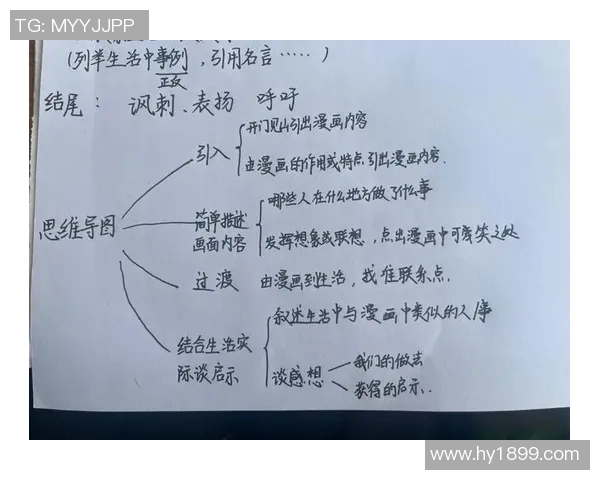 TG: MYYJJPP
(列举生活中事例，引用名言……)
正反
结尾： 讽刺、表扬 呼吁
思维导图
引入
开门见山引出漫画内容
由漫画的作用或特点引出漫画内容.
简单描述
画面内容
哪些人在什么地方做了什么事
发挥想象或联想，点出漫画中可笑之处
过渡 由漫画到生活，找准联系点.
结合生活实
际谈启示
叙述生活中与漫画中类似的人事
谈感想
我们的做法
获得的启示.
www.hy1899.com